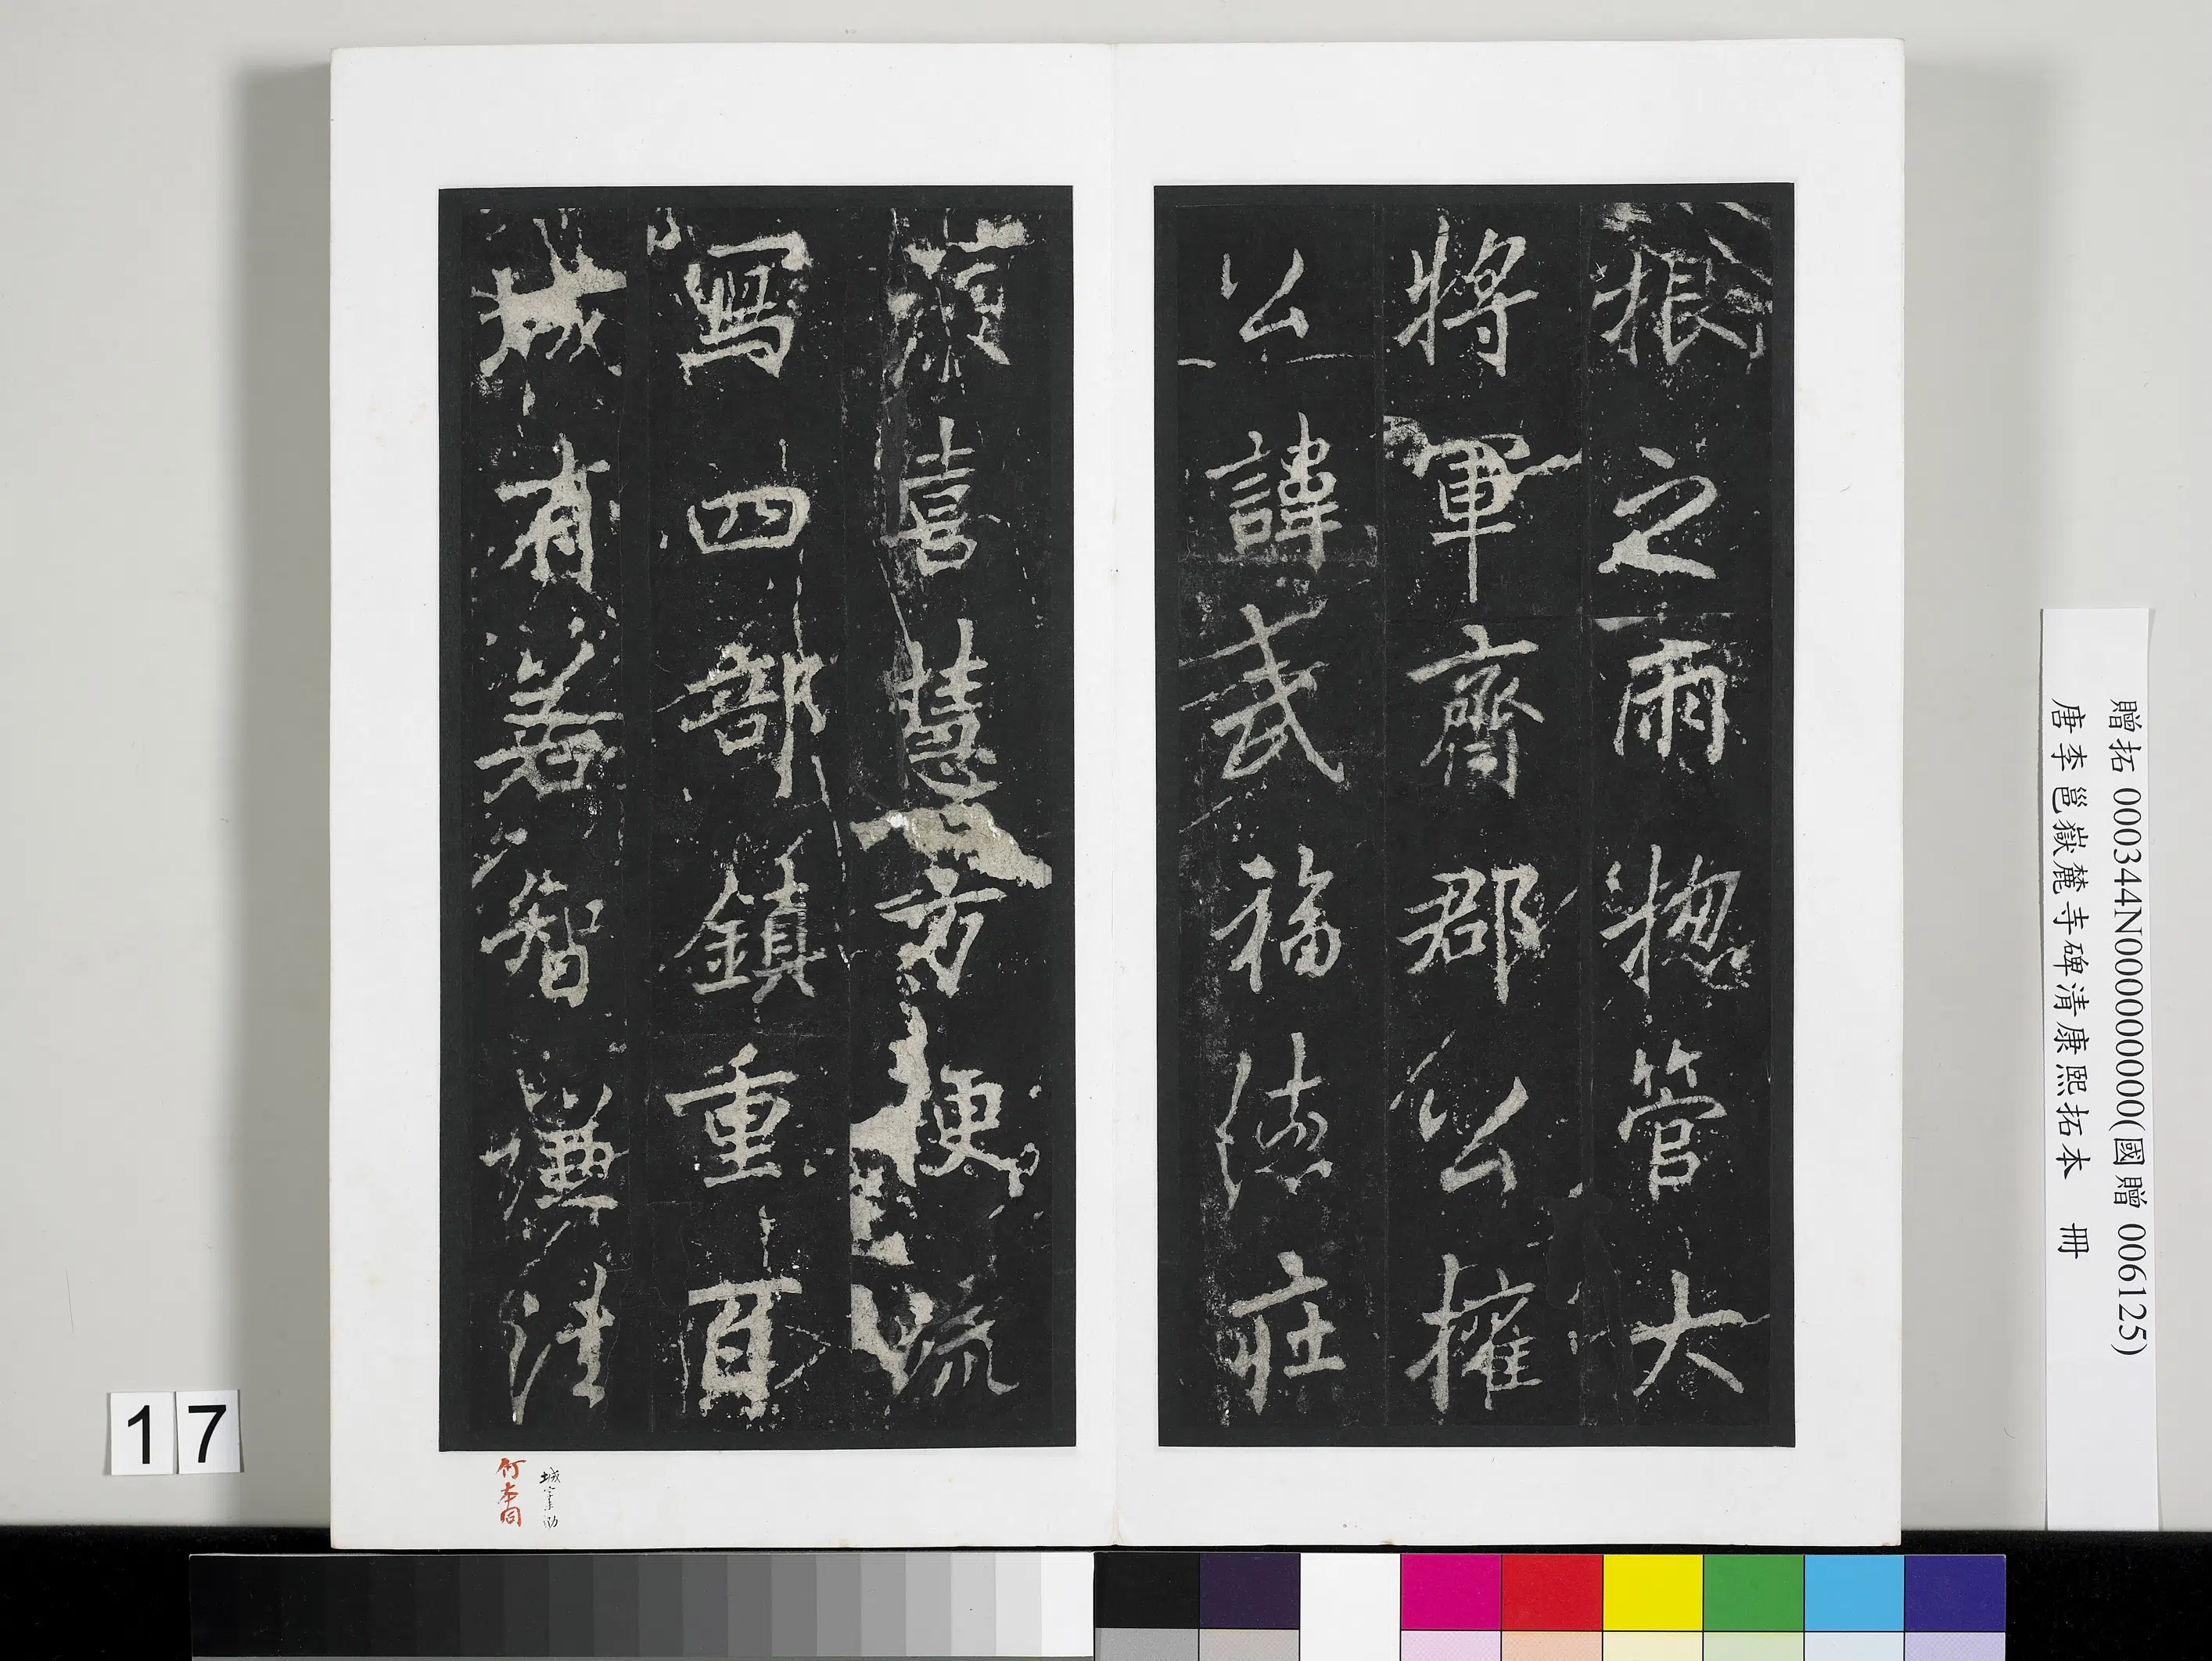 振之爾揔管大
將軍齊郡公權
公諱武福德莊
嚴喜慧方便疏
寫四部鎮重百
城有若智謙法
城字未泐
何本同
17
贈拓 000344N000000000(國贈 006125)
唐李邕嶽麓寺碑清康熙拓本 冊